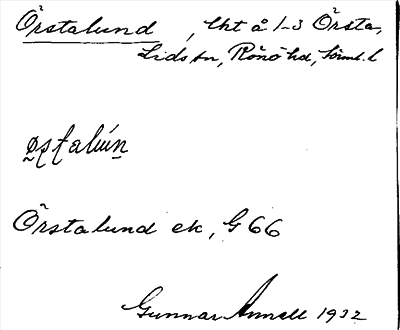 Örstalund, lht å 1-3 Örsta,
Lids sn, Rönö hd, Söml. l
Örstalund ek, G 66
Gunnar Annell 1932